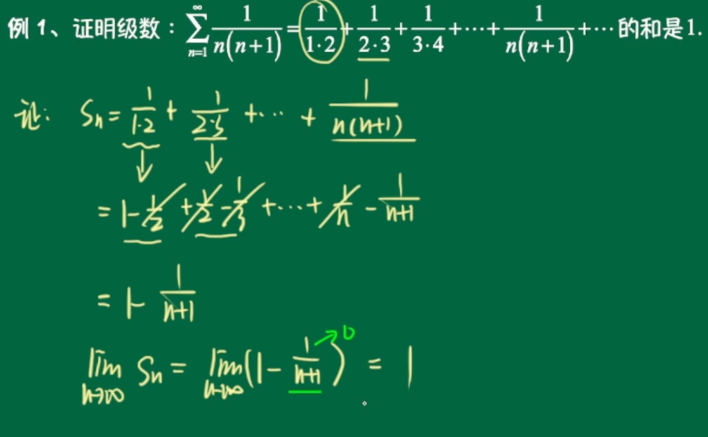 例 1、证明级数：∑_{n=1}^{∞} 1/(n(n+1)) = 1/(1·2) + 1/(2·3) + 1/(3·4) + ··· + 1/(n(n+1)) + ··· 的和是1.
证: Sn = 1/(1·2) + 1/(2·3) + ··· + 1/(n(n+1))
= 1 - 1/2 + 1/2 - 1/3 + ··· + 1/n - 1/(n+1)
= 1 - 1/(n+1)
lim_{n→∞} Sn = lim_{n→∞} (1 - 1/(n+1)) = 1
0